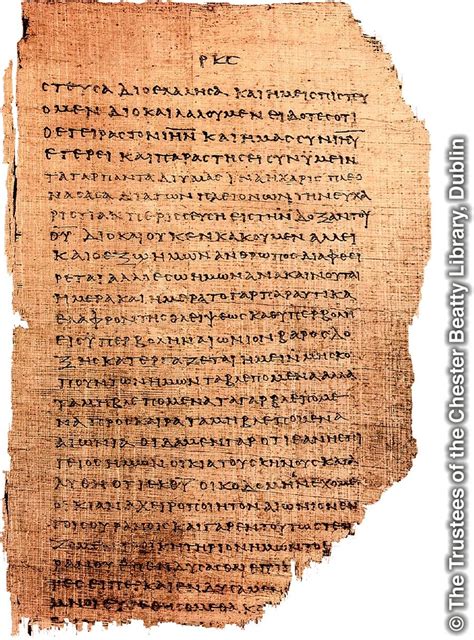 ΡΚϚ
ϹΤΕΥϹΑ ΔΙΟ ΕΛΑΛΗϹΑ ΚΑΙ ΗΜΕΙϹ ΠΙϹΤΕΥ
ΟΜΕΝ ΔΙΟ ΚΑΙ ΛΑΛΟΥΜΕΝ ΕΙΔΟΤΕϹ ΟΤΙ
Ο ΕΓΕΙΡΑϹ ΤΟΝ ΙΗΝ ΚΑΙ ΗΜΑϹ ϹΥΝ ΙΗΥ
ΕΓΕΡΕΙ ΚΑΙ ΠΑΡΑϹΤΗϹΕΙ ϹΥΝ ΥΜΕΙΝ
ΤΑ ΓΑΡ ΠΑΝΤΑ ΔΙ ΥΜΑϹ ΙΝΑ Η ΧΑΡΙϹ ΠΛΕΟ
ΝΑϹΑϹΑ ΔΙΑ ΤΩΝ ΠΛΕΙΟΝΩΝ ΤΗΝ ΕΥΧΑ
ΡΙϹΤΙΑΝ ΠΕΡΙϹϹΕΥϹΗ ΕΙϹ ΤΗΝ ΔΟΞΑΝ ΤΟΥ
ΘΥ ΔΙΟ ΚΑΙ ΟΥΚ ΕΝΚΑΚΟΥΜΕΝ ΑΛΛ ΕΙ
ΚΑΙ Ο ΕΞΩ ΗΜΩΝ ΑΝΘΡΩΠΟϹ ΔΙΑΦΘΕΙ
ΡΕΤΑΙ ΑΛΛ Ο ΕϹΩ ΗΜΩΝ ΑΝΑΚΑΙΝΟΥΤΑΙ
ΗΜΕΡΑ ΚΑΙ ΗΜΕΡΑ ΤΟ ΓΑΡ ΠΑΡΑΥΤΙΚΑ
ΕΛΑΦΡΟΝ ΤΗϹ ΘΛΕΙΨΕΩϹ ΚΑΘ ΥΠΕΡΒΟΛΗ
ΕΙϹ ΥΠΕΡΒΟΛΗΝ ΑΙΩΝΙΟΝ ΒΑΡΟϹ ΔΟ
ΞΗϹ ΚΑΤΕΡΓΑΖΕΤΑΙ ΗΜΕΙΝ ΜΗ ϹΚΟ
ΠΟΥΝΤΩΝ ΗΜΩΝ ΤΑ ΒΛΕΠΟΜΕΝΑ ΑΛΛΑ
ΤΑ ΜΗ ΒΛΕΠΟΜΕΝΑ ΤΑ ΓΑΡ ΒΛΕΠΟΜΕ
ΝΑ ΠΡΟϹΚΑΙΡΑ ΤΑ ΜΗ ΒΛΕΠΟΜΕΝΑ
ΑΙΩΝΙΑ ΟΙΔΑΜΕΝ ΓΑΡ ΟΤΙ ΕΑΝ Η ΕΠΙ
ΓΕΙΟϹ ΗΜΩΝ ΟΙΚΙΑ ΤΟΥ ϹΚΗΝΟΥϹ ΚΑΤΑ
ΛΥΘΗ ΟΤΙ ΕΚ ΘΥ ΟΙΚΟΔΟΜΗΝ ΕΧΟΜΕ
ΟΙΚΙΑΝ ΑΧΕΙΡΟΠΟΙΗΤΟΝ ΑΙΩΝΙΟΝ ΕΝ
ΤΟΙϹ ΟΥΡΑΝΟΙϹ ΚΑΙ ΓΑΡ ΕΝ ΤΟΥΤΩ ϹΤΕΝ
ΖΟΜΕΝ ΤΟ ΟΙΚΗΤΗΡΙΟΝ ΗΜΩΝ ΤΟ
ΡΑΝΟΥ ΕΠΕΝΔΥϹΑϹΘΑΙ ΕΠΙΠΟ
ΤΕϹ ΕΙΠΕΡ ΚΑΙ ΕΝΔΥϹΑΜΕΝΟΙ
ΜΝΟΙ ΕΥΡΕΘΗϹΟΜΕΘΑ
© The Trustees of the Chester Beatty Library, Dublin